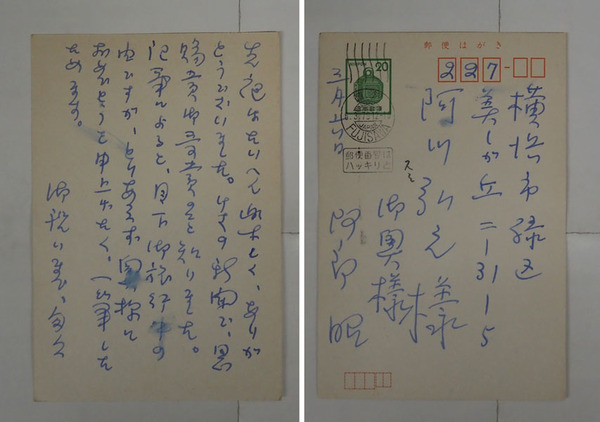 先般はたいへん楽しく、ありが
とうございました。けさの新聞で、恩
賜賞御受賞のこと知りました。
記事によると、目下御旅行中の
由ですが、とりあえず奥様に
おめでとうを申上げたく、一筆した
ためます。
御祝いまで、匆々
郵便はがき
227
20
FUJISAWA
郵便番号は
ハッキリと
横浜市緑区
美しが丘二ー31ー5
阿川弘之様
御奥様
阿部昭